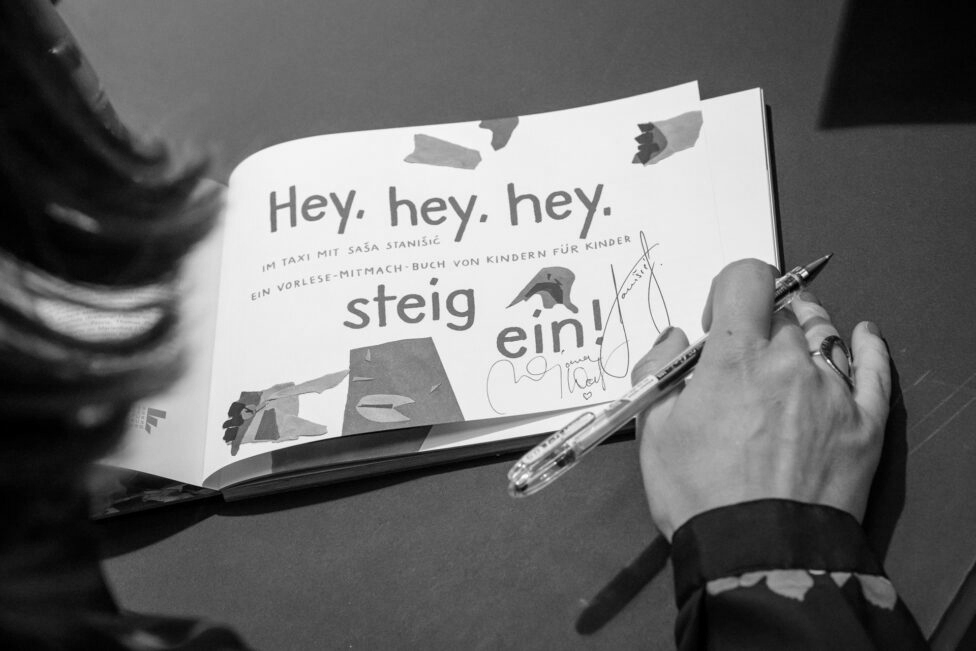 Hey, hey, hey,
IM TAXI MIT SAŠA STANIŠIĆ
EIN VORLESE-MITMACH-BUCH VON KINDERN FÜR KINDER
steig
ein!